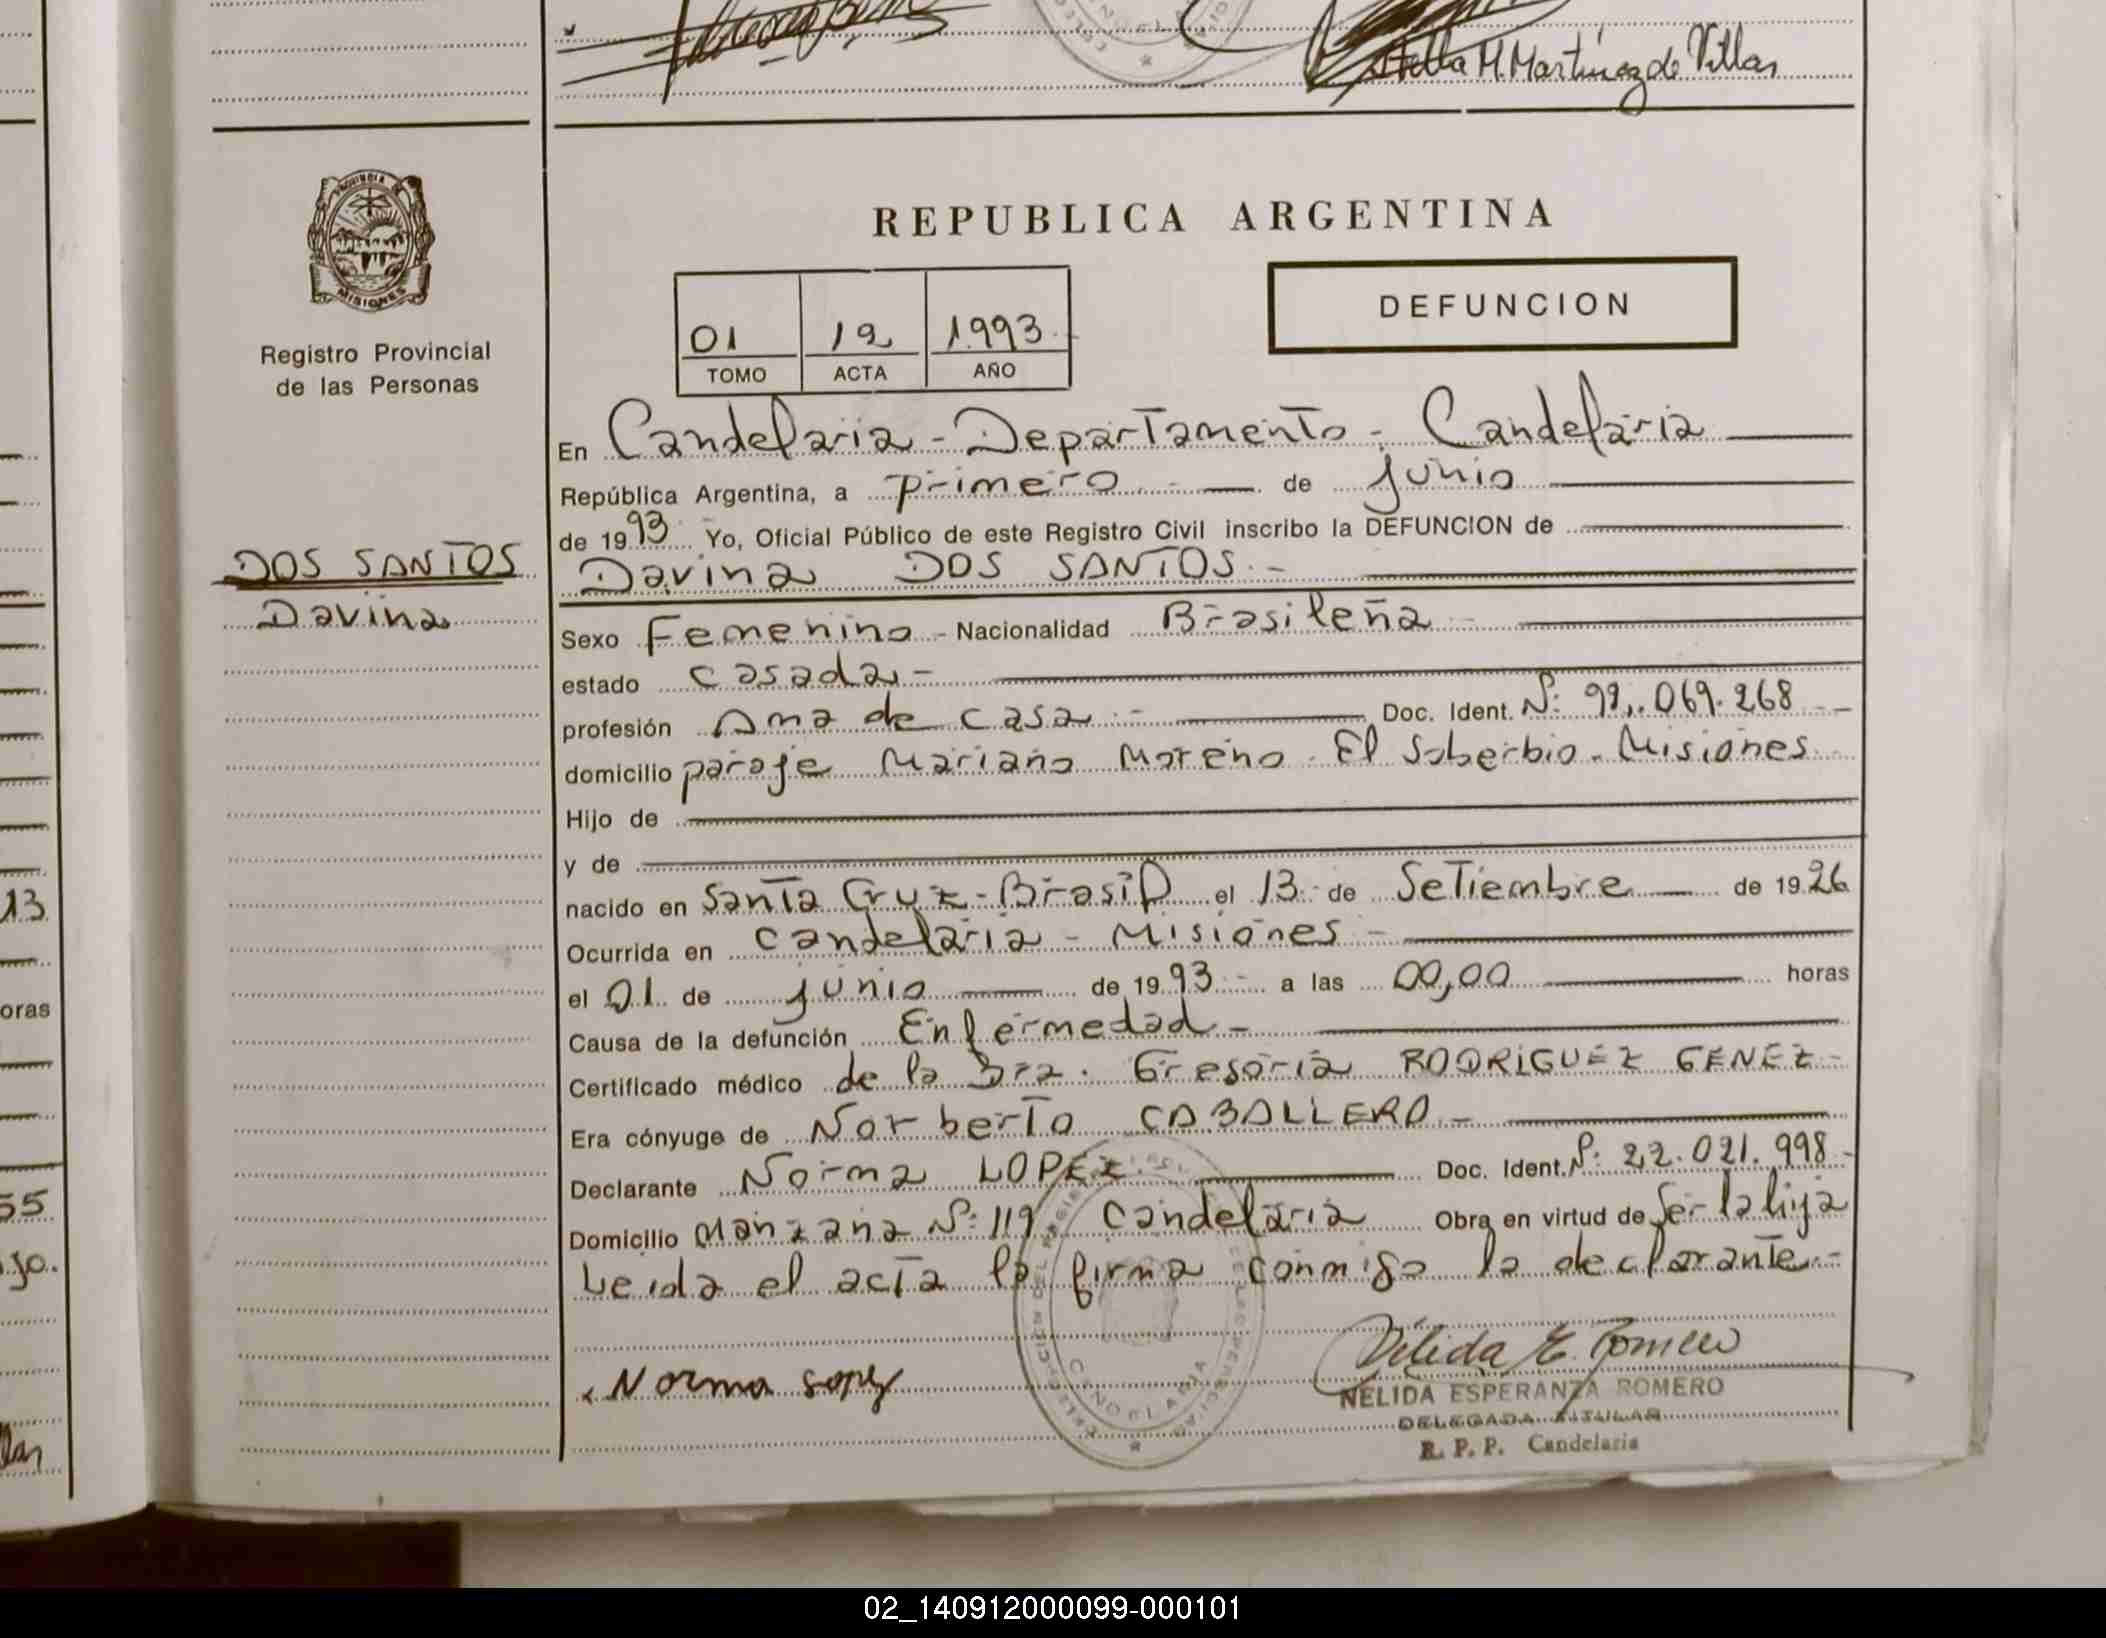 Stella M. Martínez de Villar
PROVINCIA DE
MISIONES
Registro Provincial
de las Personas
REPUBLICA ARGENTINA
DEFUNCION
01 12 1993
TOMO ACTA AÑO
En Candelaria - Departamento - Candelaria
República Argentina, a primero de junio
de 1993. Yo, Oficial Público de este Registro Civil inscribo la DEFUNCION de
DOS SANTOS
Davina
Davina DOS SANTOS.-
Sexo Femenino - Nacionalidad Brasileña -
estado casada -
profesión Ama de casa - Doc. Ident. Nº: 92.069.268
domicilio paraje Mariano Moreno - El Soberbio - Misiones
Hijo de
y de
nacido en Santa Cruz - Brasil el 13 de Setiembre de 1926
Ocurrida en candelaria - Misiones -
el 01 de junio de 1993 a las 00,00 horas
Causa de la defunción Enfermedad -
Certificado médico de la Dra. Gregoria RODRIGUEZ GENEZ -
Era cónyuge de Norberto CABALLERO -
Declarante Norma LOPEZ Doc. Ident. Nº: 22.021.998 -
Domicilio Manzana Nº: 119 Candelaria Obra en virtud de Ser la hija
Leida el acta la firma conmigo la declarante.-
Norma Lopez
Nélida E. Romero
NELIDA ESPERANZA ROMERO
DELEGADA TITULAR
R. P. P. Candelaria
13
oras
55
jo.
02_140912000099-000101